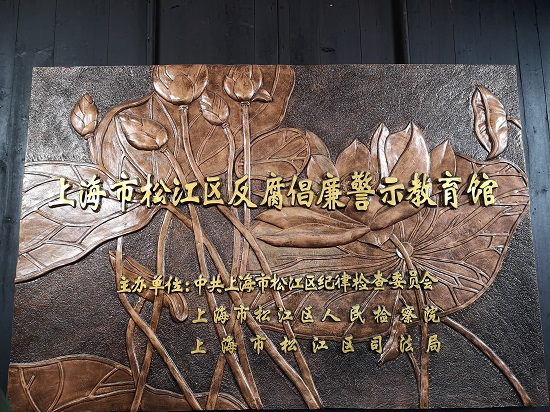 上海市松江区反腐倡廉警示教育馆
主办单位:中共上海市松江区纪律检查委员会
上海市松江区人民检察院
上海市松江区司法局